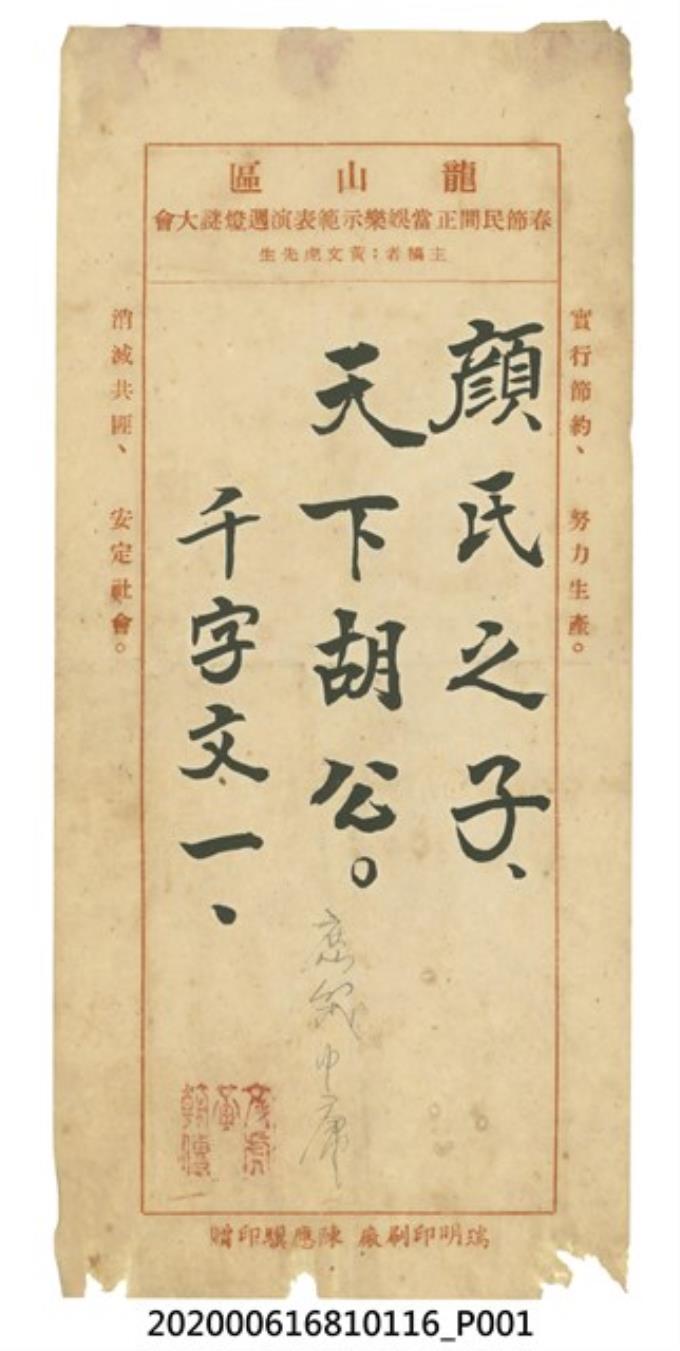 龍山區
春節民間正當娛樂示範表演週燈謎大會
主稿者：黃文虎先生
實行節約、努力生產。
顏氏之子、
天下胡公。
千字文一、
消滅共匪、安定社會。
瑞明印刷廠 陳應騏印贈
202000616810116_P001